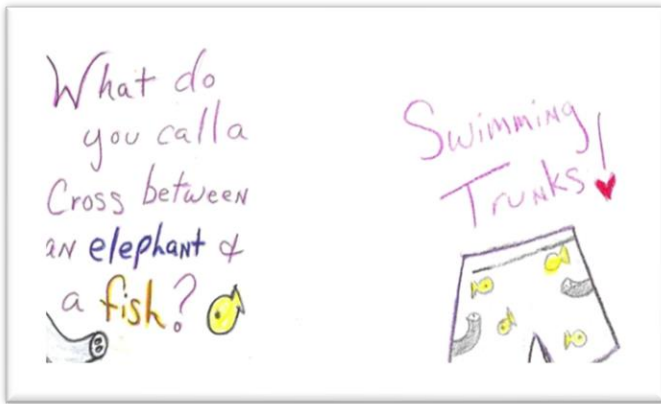 What do
you call a
Cross between
an elephant &
a fish?
Swimming
Trunks!